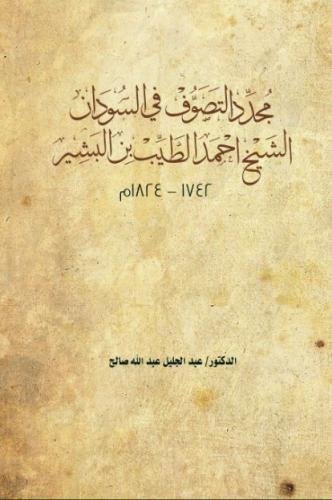 مُجَدِّد التَصَوُّف في السُودَان
الشَيْخ احْمَد الطَيِّب بِن البَشِير
١٧٤٢ - ١٨٢٤م
الدكتور/ عبد الجليل عبد الله صالح